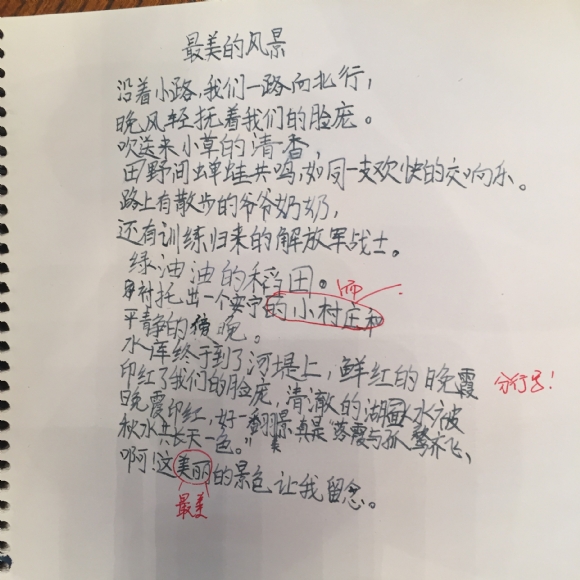 最美的风景
沿着小路,我们一路向北行,
晚风轻抚着我们的脸庞。
吹送来小草的清香,
田野间蝉蛙共鸣,如同一支欢快的交响乐。
路上有散步的爷爷奶奶,
还有训练归来的解放军战士。
绿油油的稻田。
衬托出一个安宁的小村庄和
平静的傍晚。
水库终于到了河堤上,鲜红的晚霞
分行写!
印红了我们的脸庞,清澈的湖水被
晚霞印红,好一翻景真是"落霞与孤鹜齐飞,
秋水共长天一色。"
啊!这美丽的景色让我留念。
最美